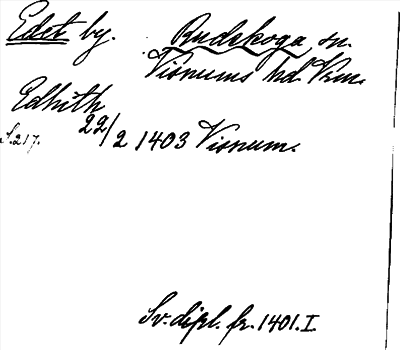 Edet by. Rudskoga sn.
Visnums hd. Vrm.
Edhith
S. 217. 22/2 1403 Visnum.
Sv. dipl. fr. 1401. I